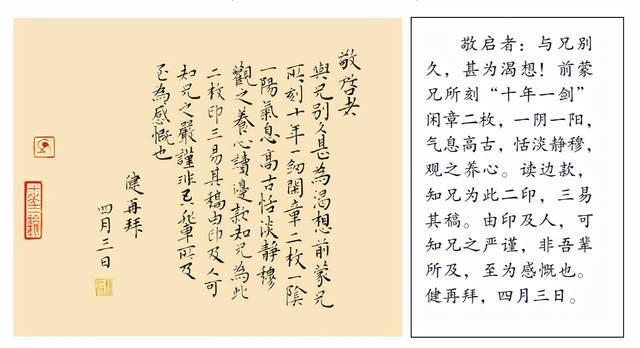 敬啓者
與兄別久甚為渴想前蒙兄
所刻十年一劍閑章二枚一陰
一陽氣息高古恬淡靜穆
觀之養心讀邊款知兄為此
二枚印三易其稿由印及人可
知兄之嚴謹非吾輩所及
至為感慨也
健再拜
四月三日
敬启者：与兄别
久，甚为渴想！前蒙
兄所刻“十年一剑”
闲章二枚，一阴一阳，
气息高古，恬淡静穆，
观之养心。读边款，
知兄为此二印，三易
其稿。由印及人，可
知兄之严谨，非吾辈
所及，至为感慨也。
健再拜，四月三日。